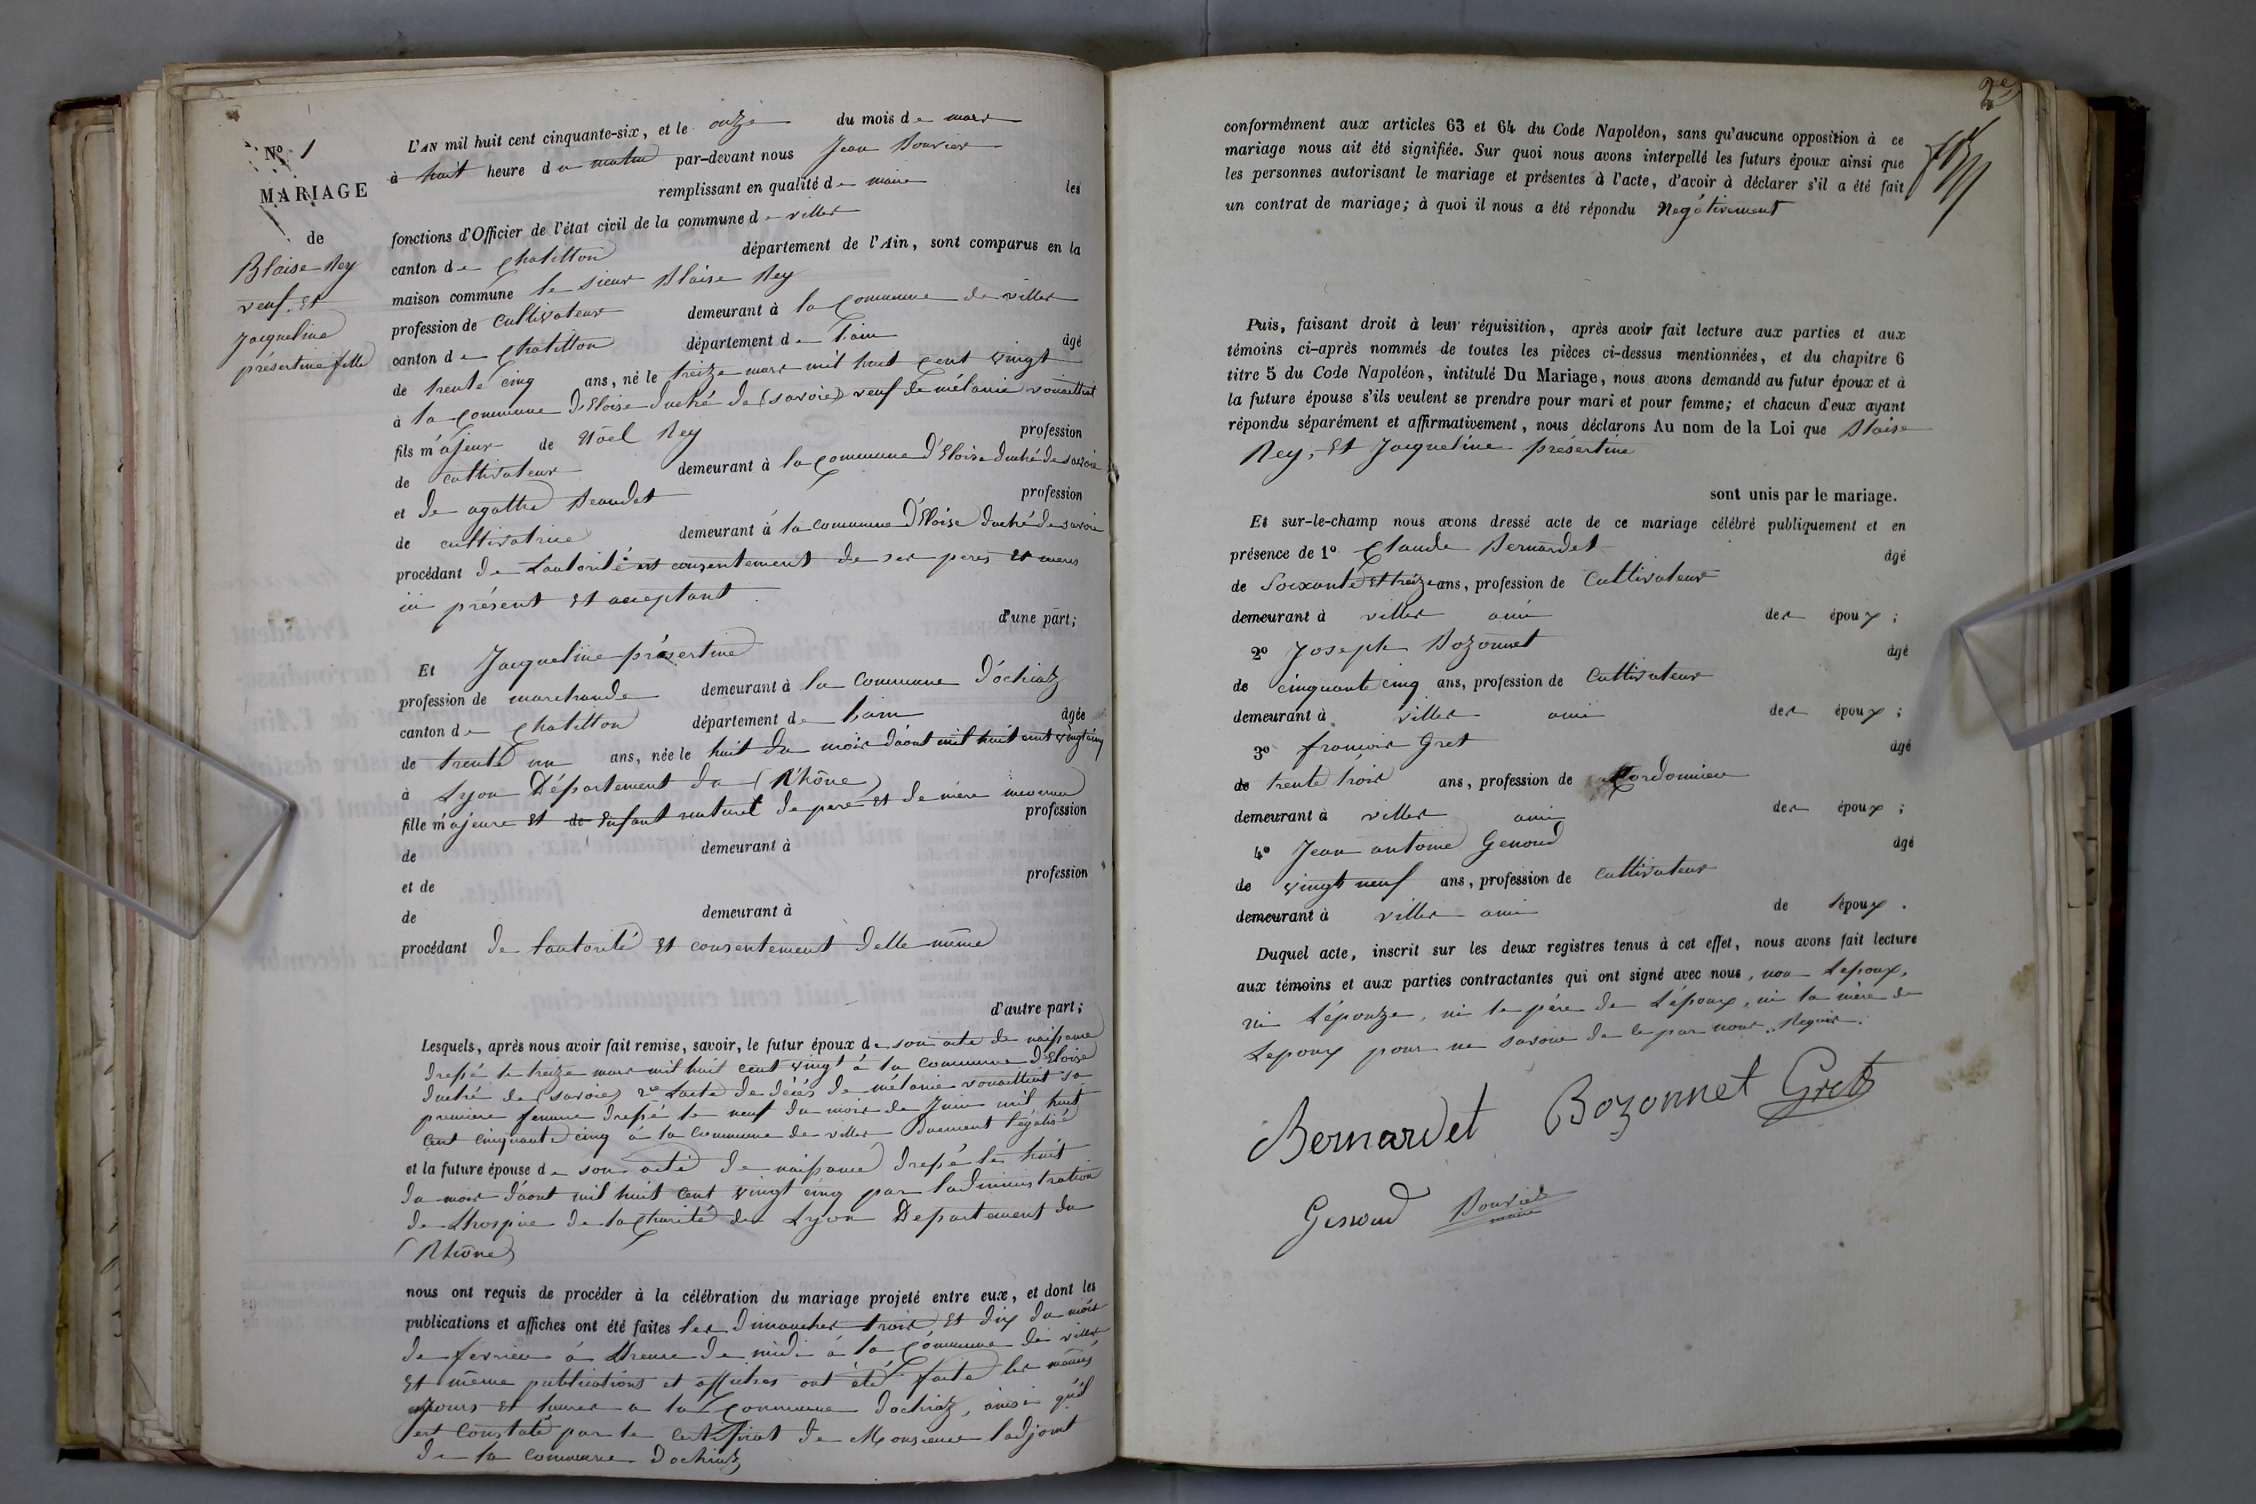 N° 1
MARIAGE
de
Blaise Rey
veuf. Et
Jacqueline
présertine fille
L'AN mil huit cent cinquante-six, et le onze du mois de mars
à huit heure du matin par-devant nous Jean Bouvier
remplissant en qualité de maire les
fonctions d'Officier de l'état civil de la commune de villes
canton de Chatillon département de l'Ain, sont comparus en la
maison commune le sieur Blaise Rey
profession de cultivateur demeurant à la commune de villes
canton de Chatillon département de l'ain âgé
de trente cinq ans, né le treize mars mil huit cent vingt
à la commune d'Eloise duché de (savoie) veuf de mélanie
fils majeur de Noël Rey profession
de cultivateur demeurant à la commune d'Eloise duché de savoie
et de agathe Beaudet profession
de cultivatrice demeurant à la commune d'Eloise duché de savoie
procédant de Lautorité et consentement de ses peres et meres
ici présent et acceptant
d'une part;
Et Jacqueline présertine
profession de marchande demeurant à la commune d'ochiaz
canton de Chatillon département de lain âgée
de trente un ans, née le huit du mois d'août mil huit cent vingt cinq
à Lyon Département du (Rhône)
fille majeure et de enfant naturel de pere et de mère inconnu profession
de demeurant à
et de profession
de demeurant à
procédant de lautorité et consentement delle même
d'autre part;
Lesquels, après nous avoir fait remise, savoir, le futur époux de son acte de naissance
dressé le treize mars mil huit cent vingt à la commune d'Eloise
duché de (savoie) 2° Lacte de décès de mélanie sa
premiere femme dressé le neuf du mois de Juin mil huit
cent cinquante cinq à la commune de villes duement légalisé
et la future épouse de son acte de naissance dressé le huit
du mois d'août mil huit cent vingt cinq par ladministration
de Lhospice de la Charité de Lyon Departement du
(Rhône)
nous ont requis de procéder à la célébration du mariage projeté entre eux, et dont les
publications et affiches ont été faites les dimanches trois et dix du mois
de fevrier à Lheure de midi à la Commune de villes
et même publications et affiches ont été faite les mêmes
jours et heures a la Commune dochiaz, ainsi qu'il
est constaté par le certificat de Monsieur ladjoint
de la commune dochiaz
2e
conformément aux articles 63 et 64 du Code Napoléon, sans qu'aucune opposition à ce
mariage nous ait été signifiée. Sur quoi nous avons interpellé les futurs époux ainsi que
les personnes autorisant le mariage et présentes à l'acte, d'avoir à déclarer s'il a été fait
un contrat de mariage; à quoi il nous a été répondu Negativement
Puis, faisant droit à leur réquisition, après avoir fait lecture aux parties et aux
témoins ci-après nommés de toutes les pièces ci-dessus mentionnées, et du chapitre 6
titre 5 du Code Napoléon, intitulé Du Mariage, nous avons demandé au futur époux et à
la future épouse s'ils veulent se prendre pour mari et pour femme; et chacun d'eux ayant
répondu séparément et affirmativement, nous déclarons Au nom de la Loi que Blaise
Rey, Et Jacqueline présertine
sont unis par le mariage.
Et sur-le-champ nous avons dressé acte de ce mariage célébré publiquement et en
présence de 1° Claude Bernardet âgé
de Soixante et treize ans, profession de Cultivateur
demeurant à villes ami des époux;
2° Joseph Bozonnet âgé
de cinquante cinq ans, profession de Cultivateur
demeurant à villes ami des époux;
3° francois Gret âgé
de trente trois ans, profession de Cordonnier
demeurant à villes ami des époux;
4° Jean antoine Genoud âgé
de vingt neuf ans, profession de cultivateur
demeurant à villes ami de lépoux.
Duquel acte, inscrit sur les deux registres tenus à cet effet, nous avons fait lecture
aux témoins et aux parties contractantes qui ont signé avec nous, non Lepoux,
ni Lépouze, ni le père de Lépoux, ni la mère de
Lepoux pour ne savoir de ce par nous Requis.
Bernardet Bozonnet Gret
Genoud Bouvier
maire